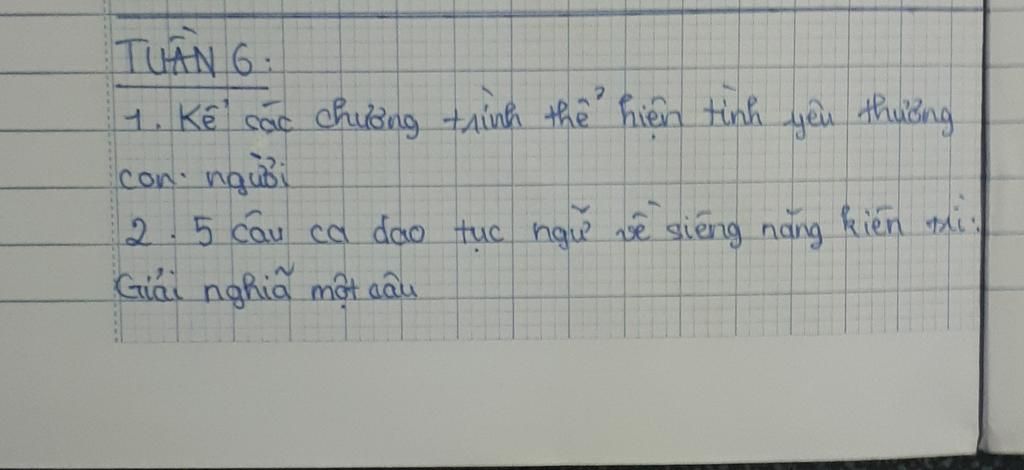 TUẦN 6:
1. Kể các chương trình thể hiện tình yêu thương
con người
2. 5 câu ca dao tục ngữ về siêng năng kiên trì.
Giải nghĩa một câu